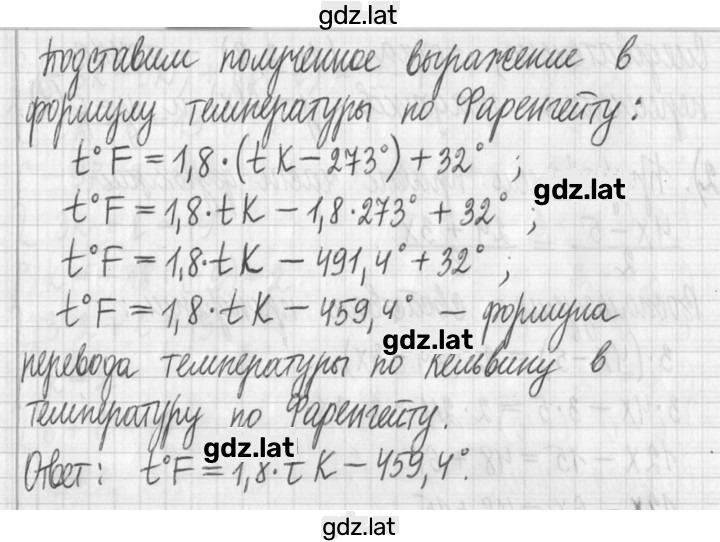 gdz.lat
Подставим полученное выражение в
формулу температуры по Фаренгейту:
t°F = 1,8·(t K − 273°) + 32° ;
gdz.lat
t°F = 1,8·t K − 1,8·273° + 32° ;
t°F = 1,8·t K − 491,4° + 32° ;
t°F = 1,8·t K − 459,4° — формула
gdz.lat
перевода температуры по кельвину в
температуру по Фаренгейту.
gdz.lat
Ответ: t°F = 1,8·t K − 459,4°.
gdz.lat